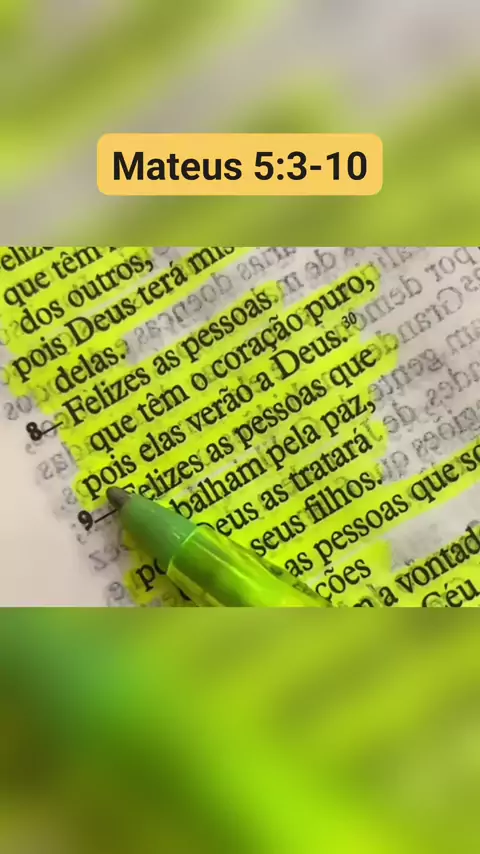 Mateus 5:3-10
que têm
dos outros,
pois Deus terá mis
delas.
8— Felizes as pessoas
que têm o coração puro,
pois elas verão a Deus.30
9— Felizes as pessoas que
balham pela paz,
Deus as tratará
seus filhos.
as pessoas que so
ções
a vontad
Céu